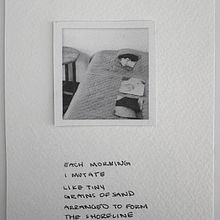 EACH MORNING
I MUTATE
LIKE TINY
GRAINS OF SAND
ARRANGED TO FORM
THE SHORELINE